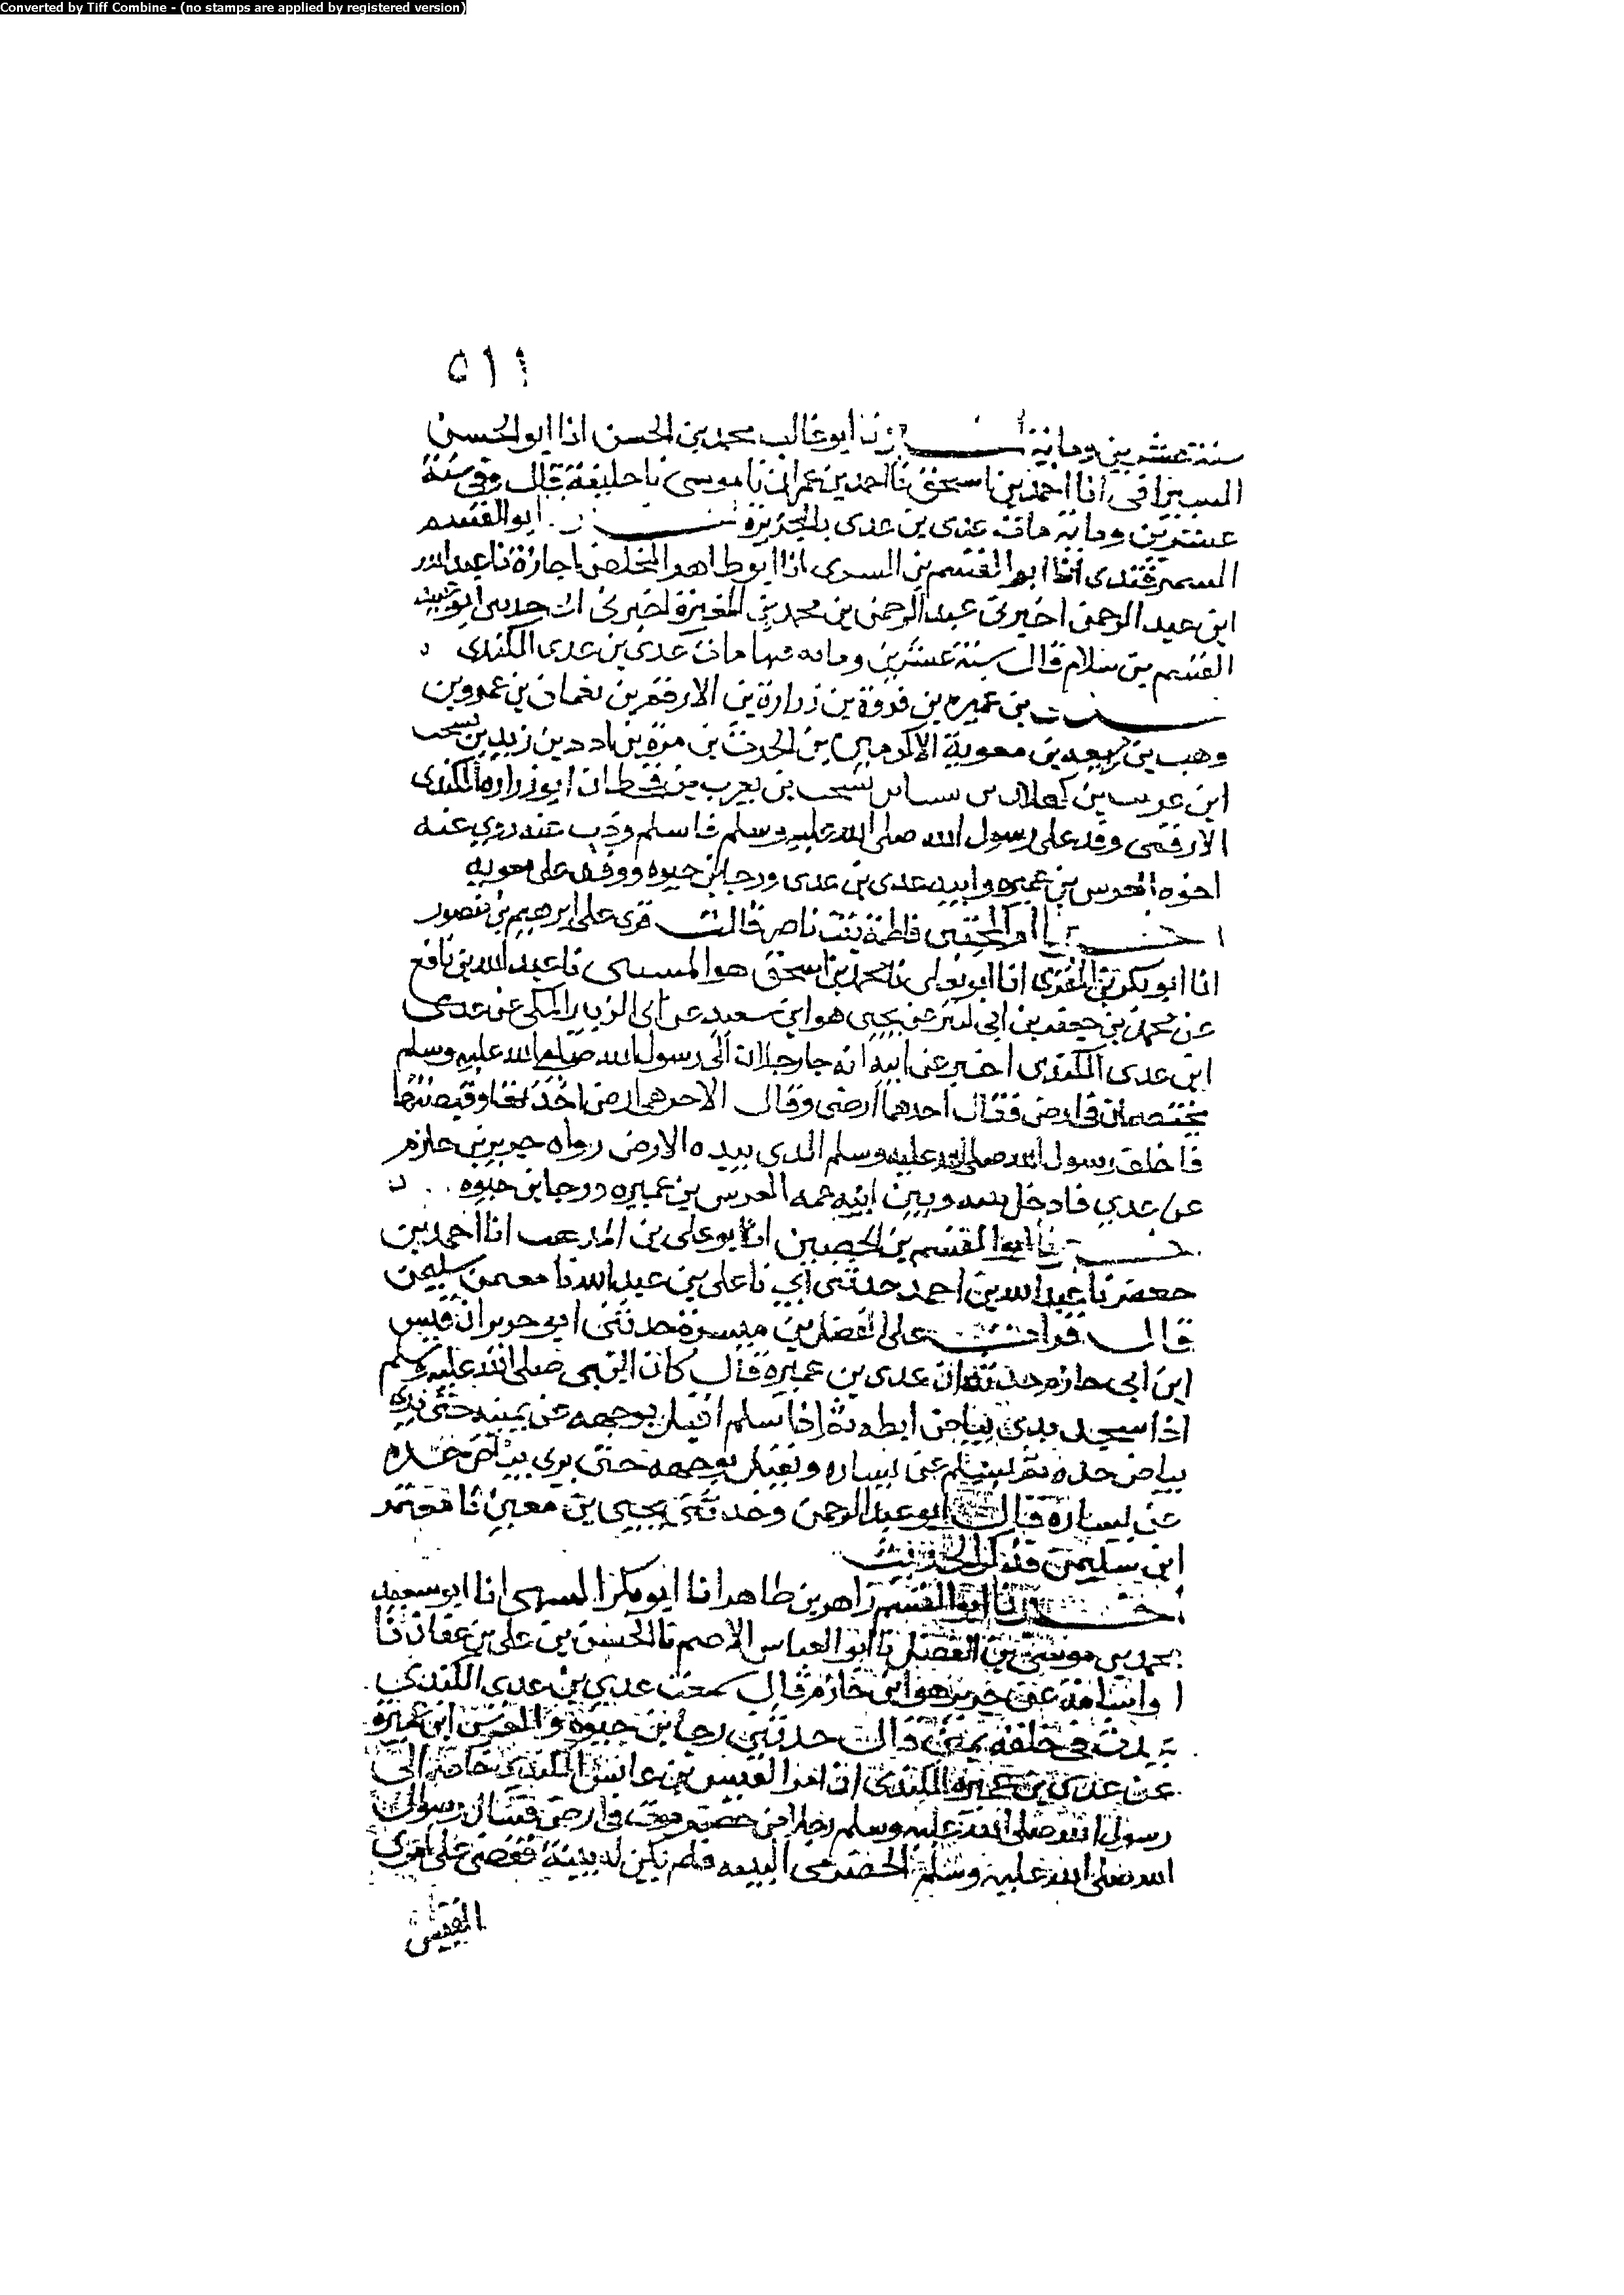 Converted by Tiff Combine - (no stamps are applied by registered version)
٥١١
سنة عشرين ومائة أخبرنا ابو غالب محمد بن الحسن انا ابو الحسن
السيرافي انا احمد بن اسحق نا احمد بن عمران نا موسى نا خليفة قال وفي سنة
عشرين ومائة مات عدي بن عدي بالجزيرة ابو القسم
السمرقندي انا ابو القسم بن البسري انا ابو طاهر المخلص اجازة نا عبيد الله
ابن عبد الرحمن اخبرني عبد الرحمن بن محمد بن المغيرة اخبرني ابي حدثني ابو عبيد
القسم بن سلام قال سنة عشرين ومائه فيها مات عدي بن عدي الكندي
بن عميره بن فروة بن زرارة بن الارقم بن نعمان بن عمرو بن
وهب بن ربيعه بن معوية الاكرمين بن الحرث بن مرة بن ادد بن زيد بن يشجب
ابن عريب بن كهلان بن سبا بن يشجب بن يعرب بن قحطان ابو زراره الكندي
الارقمي وفد على رسول الله صلى الله عليه وسلم فاسلم وروى عنه روي عنه
اخوه العرس بن عميره وابنه عدي بن عدي ورجا بن حيوه ووفد على معويه
اخبرتنا ام المجتبى فاطمة بنت ناصر قالت قرئ على ابرهيم بن منصور
انا ابو بكر بن المقرئ انا ابو يعلى نا محمد بن اسحق هو المسيبي نا عبد الله بن نافع
عن محمد بن جعفر بن ابي كثير عن يحيى هو ابن سعيد عن ابي الزبير المكي عن عدي
ابن عدي الكندي اخبره عن ابيه انه جا رجلان الى رسول الله صلى الله عليه وسلم
يختصمان في ارض فقال احدهما ارضي وقال الاخر هي ارضي اخذتها وقبضتها
فاحلف رسول الله صلى الله عليه وسلم الذي بيده الارض رواه جرير بن حازم
عن عدي فادخل بينه وبين ابيه عمه العرس بن عميره ورجا بن حيوه
اخبرنا ابو القسم بن الحصين انا ابو علي بن المذهب انا احمد بن
جعفر نا عبد الله بن احمد حدثني ابي نا علي بن عبد الله نا معتمر بن سليمن
قال قرات على الفضل بن ميسرة حدثني ابو حريز ان قيس
ابن ابي حازم حدثه ان عدي بن عميرة قال كان النبي صلى الله عليه وسلم
اذا سجد يرى بياض ابطه ثم اذا سلم اقبل بوجهه عن يمينه حتى يرى
بياض خده ثم يسلم عن يساره ويقبل بوجهه حتى يرى بياض خده
عن يساره قال ابو عبد الرحمن وحدثني يحيى بن معين نا معتمر
ابن سليمن فذكر الحديث
اخبرنا ابو القسم زاهر بن طاهر انا ابو بكر البيهقي انا ابو سعيد
محمد بن موسى بن الفضل نا ابو العباس الاصم نا الحسن بن علي بن عفان نا
ابو اسامة عن جرير هو ابن حازم قال سمعت عدي بن عدي الكندي
يحدث في حلقة بمنى قال حدثني رجا بن حيوة والعرس ابن عميرة
عن عدي بن عميره الكندي ان امرا القيس بن عانس الكندي خاصم الى
رسول الله صلى الله عليه وسلم رجلا من حضرموت في ارض فسال رسول
الله صلى الله عليه وسلم الحضرمي البينه فلم يكن له بينة فقضى على امرئ
القيس